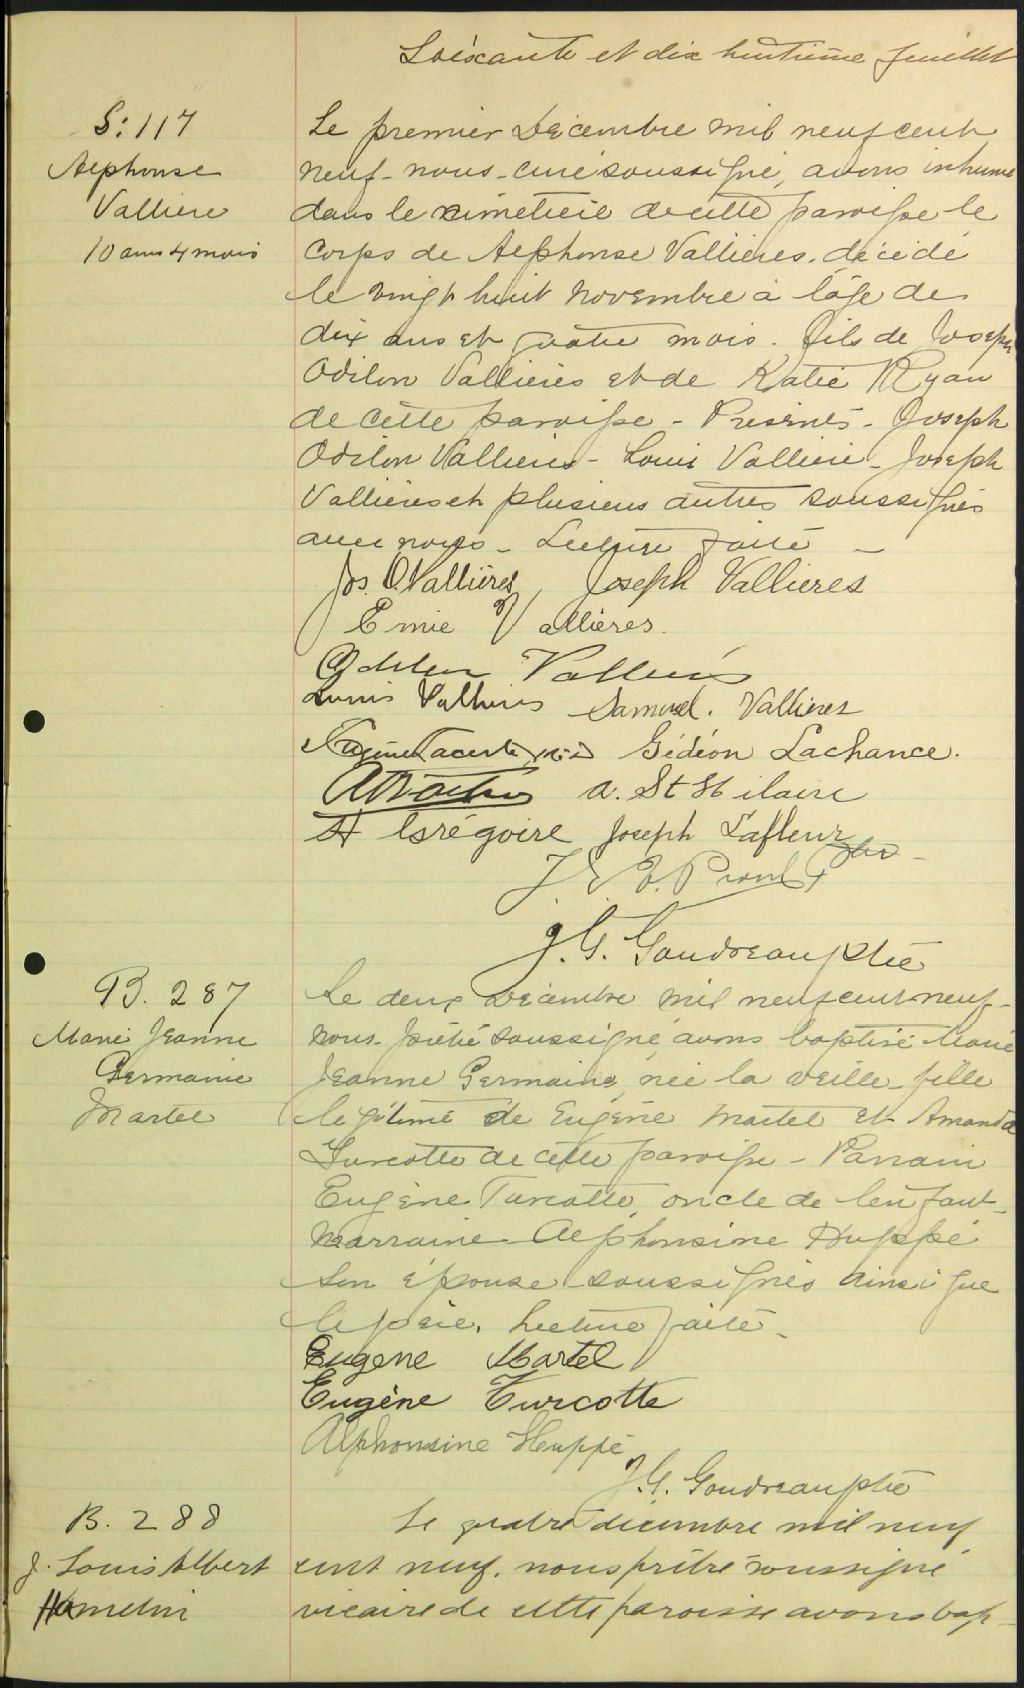 Soixante et dix huitième feuillet
S: 117
Alphonse
Vallière
10 ans 4 mois
Le premier Décembre mil neuf cent
neuf - nous - curé soussigné, avons inhumé
dans le cimetière de cette paroisse le
corps de Alphonse Vallières, décédé
le vingt huit Novembre à l'âge de
dix ans et quatre mois. fils de Joseph
Odilon Vallières et de Katie Ryan
de cette paroisse - Présents - Joseph
Odilon Vallières - Louis Vallière - Joseph
Vallières et plusieurs autres soussignés
avec nous - Lecture faite -
Jos. O. Vallières, Joseph Vallieres
Emie Vallières.
Odilon Vallières
Louis Vallières Samuel. Vallieres
Gédéon Lachance.
A. St Hilaire
H Grégoire Joseph Lafleur
J. E. E. Proulx
J. G. Goudreau ptre
B. 287
Marie Jeanne
Germaine
Martel
Le deux Décembre mil neuf cent neuf -
nous - prêtre soussigné, avons baptisé Marie
Jeanne Germaine, née la veille - fille
légitime de Eugène Martel et Amanda
Turcotte de cette paroisse - Parrain
Eugène Turcotte, oncle de l'enfant -
Marraine - Alphonsine Huppé
son épouse soussignés ainsi que
le père. Lecture faite -
Eugene Martel
Eugène Turcotte
Alphonsine Huppé
J. G. Goudreau ptre
B. 288
J. Louis Albert
Hamelin
Le quatre décembre mil neuf
cent neuf. nous prêtre soussigné
vicaire de cette paroisse avons bap-